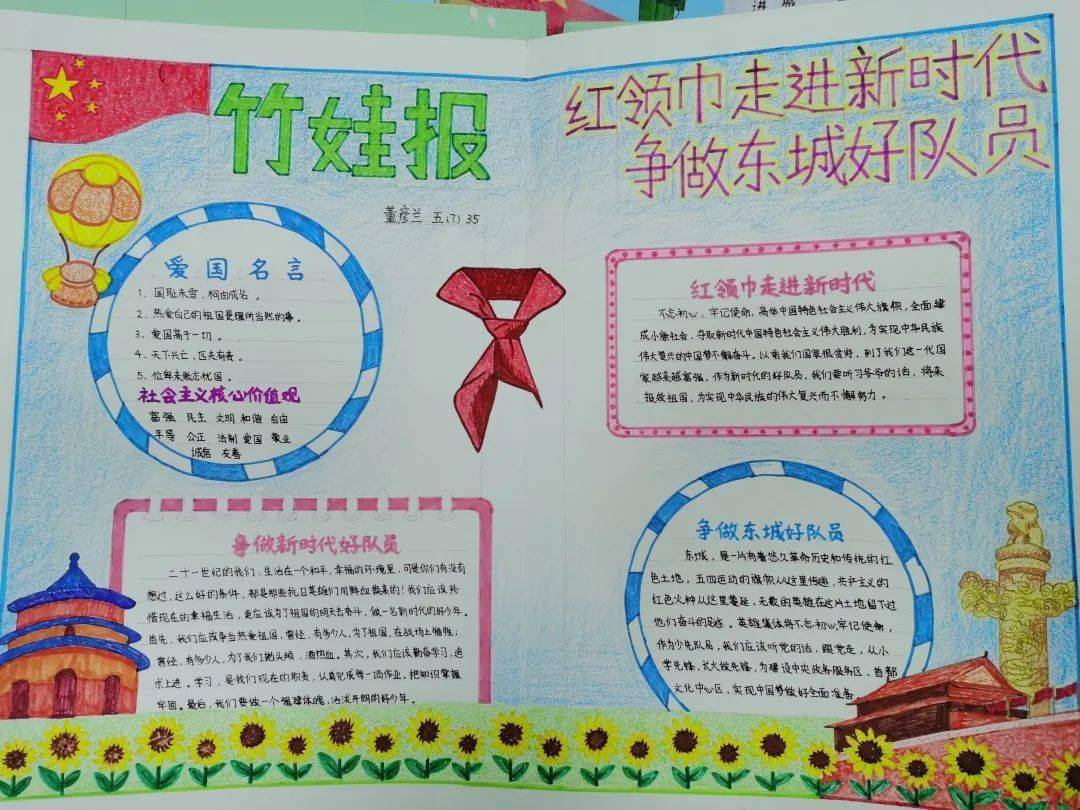 进 城
竹娃报
董彦兰 五(7) 35
爱国名言
1、国耻未雪,何由成名。
2、热爱自己的祖国是理所当然的事。
3、爱国高于一切。
4、天下兴亡,匹夫有责。
5、位卑未敢忘忧国。
社会主义核心价值观
富强 民主 文明 和谐 自由
平等 公正 法制 爱国 敬业
诚信 友善
争做新时代好队员
二十一世纪的我们,生活在一个和平,幸福的环境里,可是你们有没有
想过,这么好的条件,都是那些抗日英雄们用鲜血换来的!我们应该珍
惜现在的幸福生活,更应该为了祖国的明天去奋斗,做一名新时代的好少年。
首先,我们应该争当热爱祖国,曾经,有多少人,为了祖国,在战场上牺牲;
曾经,有多少人,为了我们抛头颅,洒热血。其次,我们应该勤奋学习,追
求上进。学习,是我们现在的职责,认真完成每一项作业,把知识掌握
牢固。最后,我们要做一个强建体魄,活泼开朗的好少年。
红领巾走进新时代
争做东城好队员
红领巾走进新时代
不忘初心,牢记使命,高举中国特色社会主义伟大旗帜,全面建
成小康社会,夺取新时代中国特色社会主义伟大胜利,为实现中华民族
伟大复兴的中国梦不懈奋斗。以前我们国家很贫穷,到了我们这一代国
家越来越富强,作为新时代的好队员,我们要听习爷爷的话,将来
报效祖国,为实现中华民族的伟大复兴而不懈努力。
争做东城好队员
东城,是一片有着悠久革命历史和传统的红
色土地,五四运动的旗帜从这里传递,共产主义的
红色火种从这里蔓延,无数的英雄在这片土地留下过
他们奋斗的足迹。英雄集体将不忘初心,牢记使命,
作为少先队员,我们应该听党的话,跟党走,从小
学先锋,长大做先锋,为建设中央政务服务区,首都
文化中心区,实现中国梦做好全面准备。